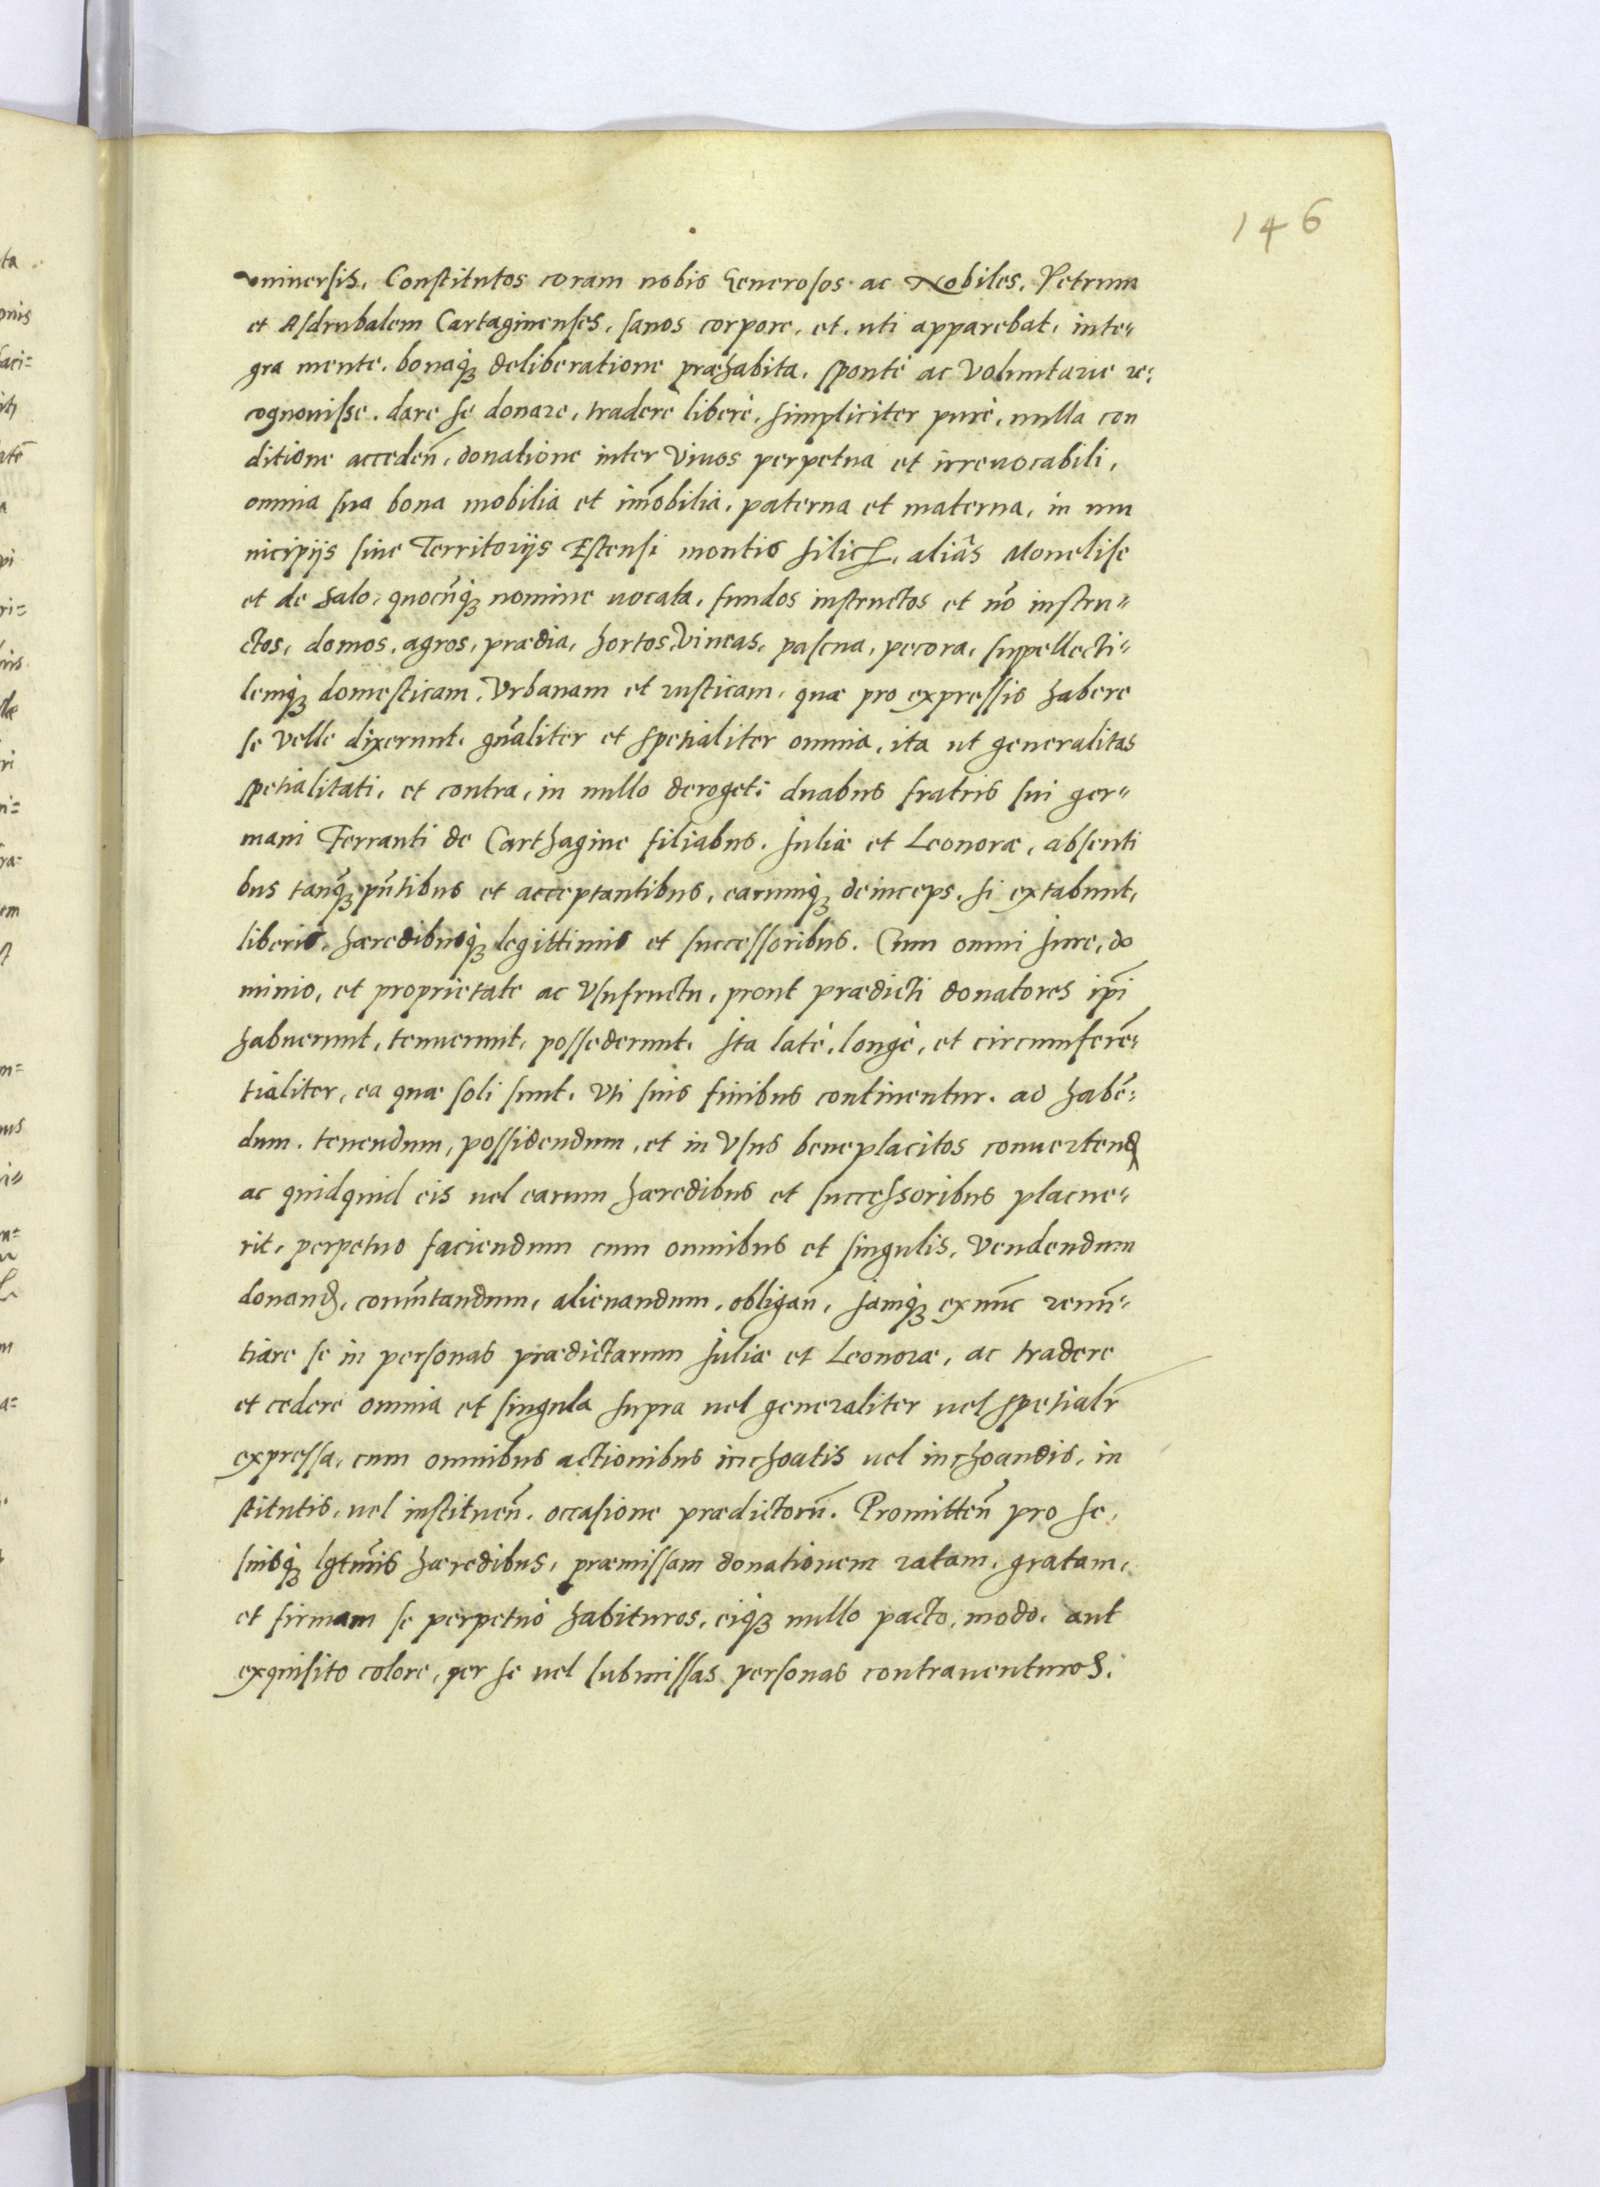 146
vniuersis, Constitutos coram nobis Generosos ac Nobiles, Petrum
et Asdrubalem Cartaginenses, sanos corpore, et, uti apparebat, inte=
gra mente, bonaq́ꝫ deliberatione præhabita, sponte ac voluntarie re=
cognouisse, dare se donare, tradere liberè, simpliciter purè, nulla con
ditione acceden̄, donatione inter viuos perpetua et irreuocabili,
omnia sua bona mobilia et im̄obilia, paterna et materna, in mu
nicipijs siue Territorijs Estensi montis silicis, aliàs Monelise
et de Salo, quocūq́ꝫ nomine uocata, fundos instructos et nō instru=
ctos, domos, agros, prædia, hortos, vineas, pascua, pecora, suppellecti=
lemq́ꝫ domesticam, Vrbanam et rusticam, quæ pro expressis habere
se velle dixerunt, gn̄aliter et spetialiter omnia, ita ut generalitas
spetialitati, et contra, in nullo deroget; duabus fratris sui ger=
mani Ferranti de Carthagine filiabus, Juliæ et Leonoræ, absenti
bus tanq̄ꝫ pn̄tibus et acceptantibus, earumq́ꝫ deinceps, si extabunt,
liberis, hæredibusq́ꝫ legittimis et successoribus. Cum omni Jure, do
minio, et proprietate ac Vsufructu, prout prædicti donatores ip̄i
habuerunt, tenuerunt, possederunt, Jta latè, longè, et circumferē=
tialiter, ea quæ soli sunt, vti suis finibus continentur, ad habē=
dum, tenendum, possidendum, et in Vsus beneplacitos conuertend
ac quidquid eis uel earum hæredibus et successoribus placue=
rit, perpetuo faciendum cum omnibus et singulis, Vendendum
donand, com̄utandum, alienandum, obligan̄, Jamq́ꝫ exnūc renū=
tiare se in personas prædictarum Juliæ et Leonoræ, ac tradere
et cedere omnia et singula supra uel generaliter uel spetialr̄
expressa, cum omnibus actionibus inchoatis uel inchoandis, in
stitutis, uel instituen̄, occasione prædictorū. Promitten̄ pro se,
suisq́ꝫ lgtīmis hæredibus, præmissam donationem ratam, gratam,
et firmam se perpetuò habituros, eiq́ꝫ nullo pacto, modo, aut
exquisito colore, per se uel submissas personas contrauenturos.